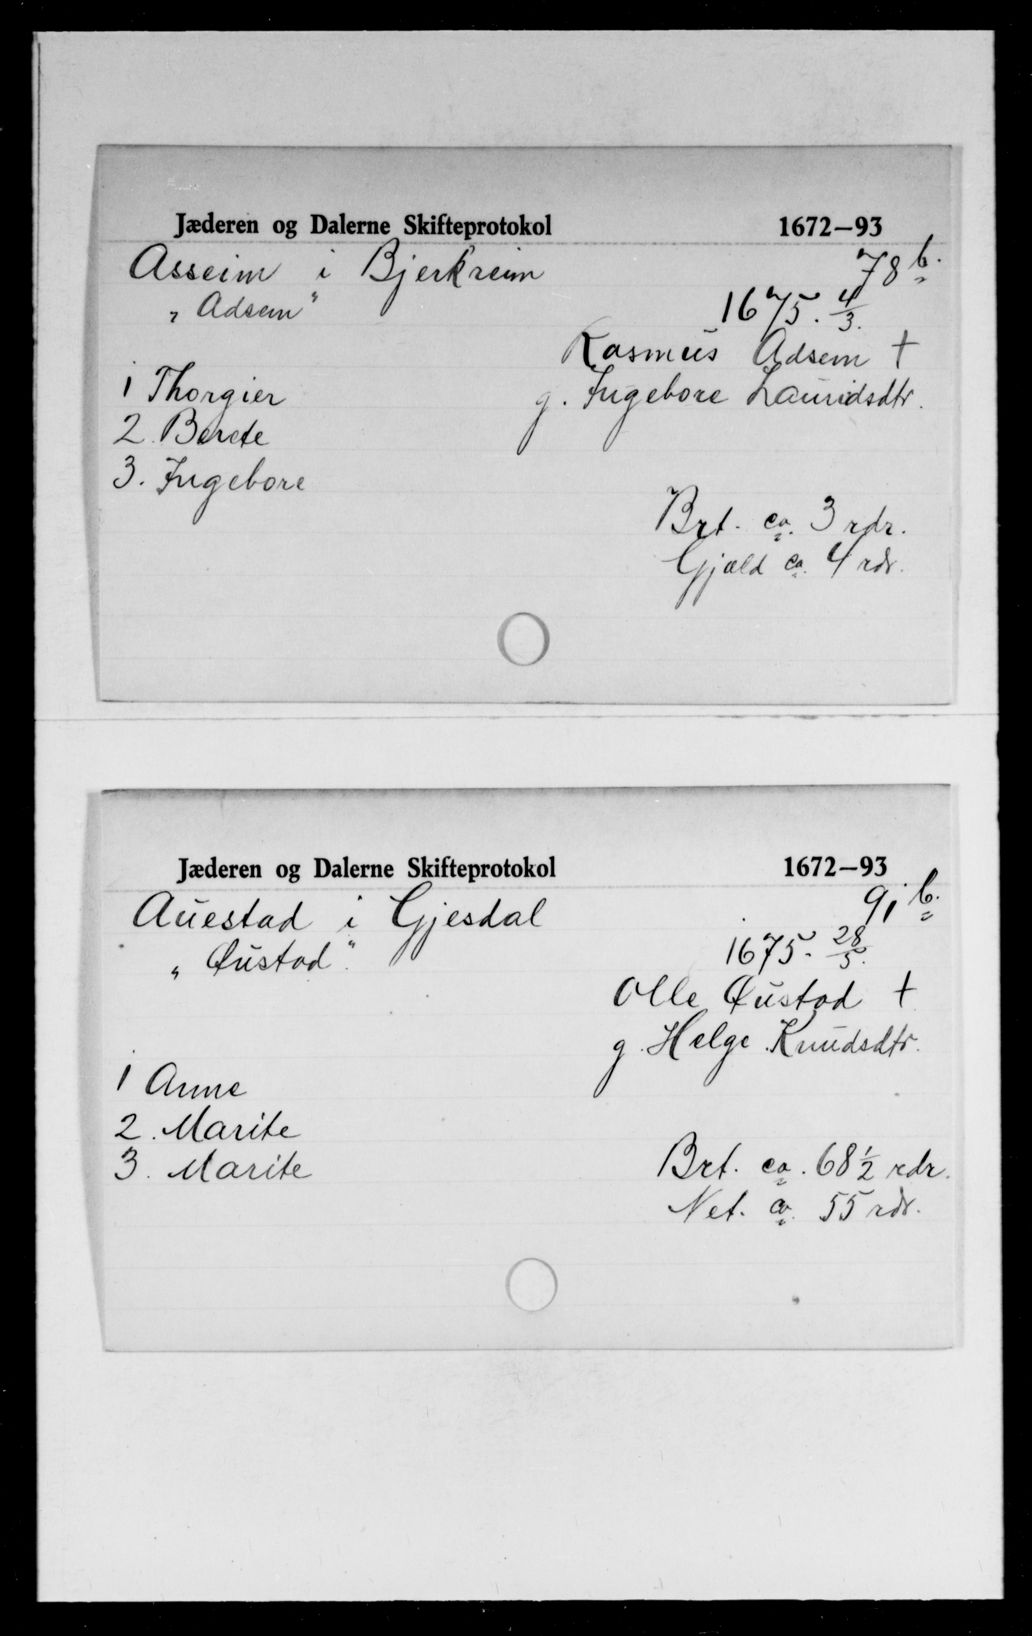 Jæderen og Dalerne Skifteprotokol 1672–93
Asseim i Bjerkreim 78 b.
"Adsem" 1675. 4/3.
Rasmus Adsem †
1 Thorgier g. Ingebore Lauridsdtr.
2. Berete
3. Ingebore
Brt. ca. 3 rdr.
Gjæld ca. 4 rdr.
Jæderen og Dalerne Skifteprotokol 1672–93
Auestad i Gjesdal 91 b.
"Øustad". 1675. 28/5.
Olle Øustad †
g. Helge Knudsdtr.
1 Anne
2. Marite
3. Marite Brt. ca. 68 1/2 rdr.
Net. ca. 55 rdr.